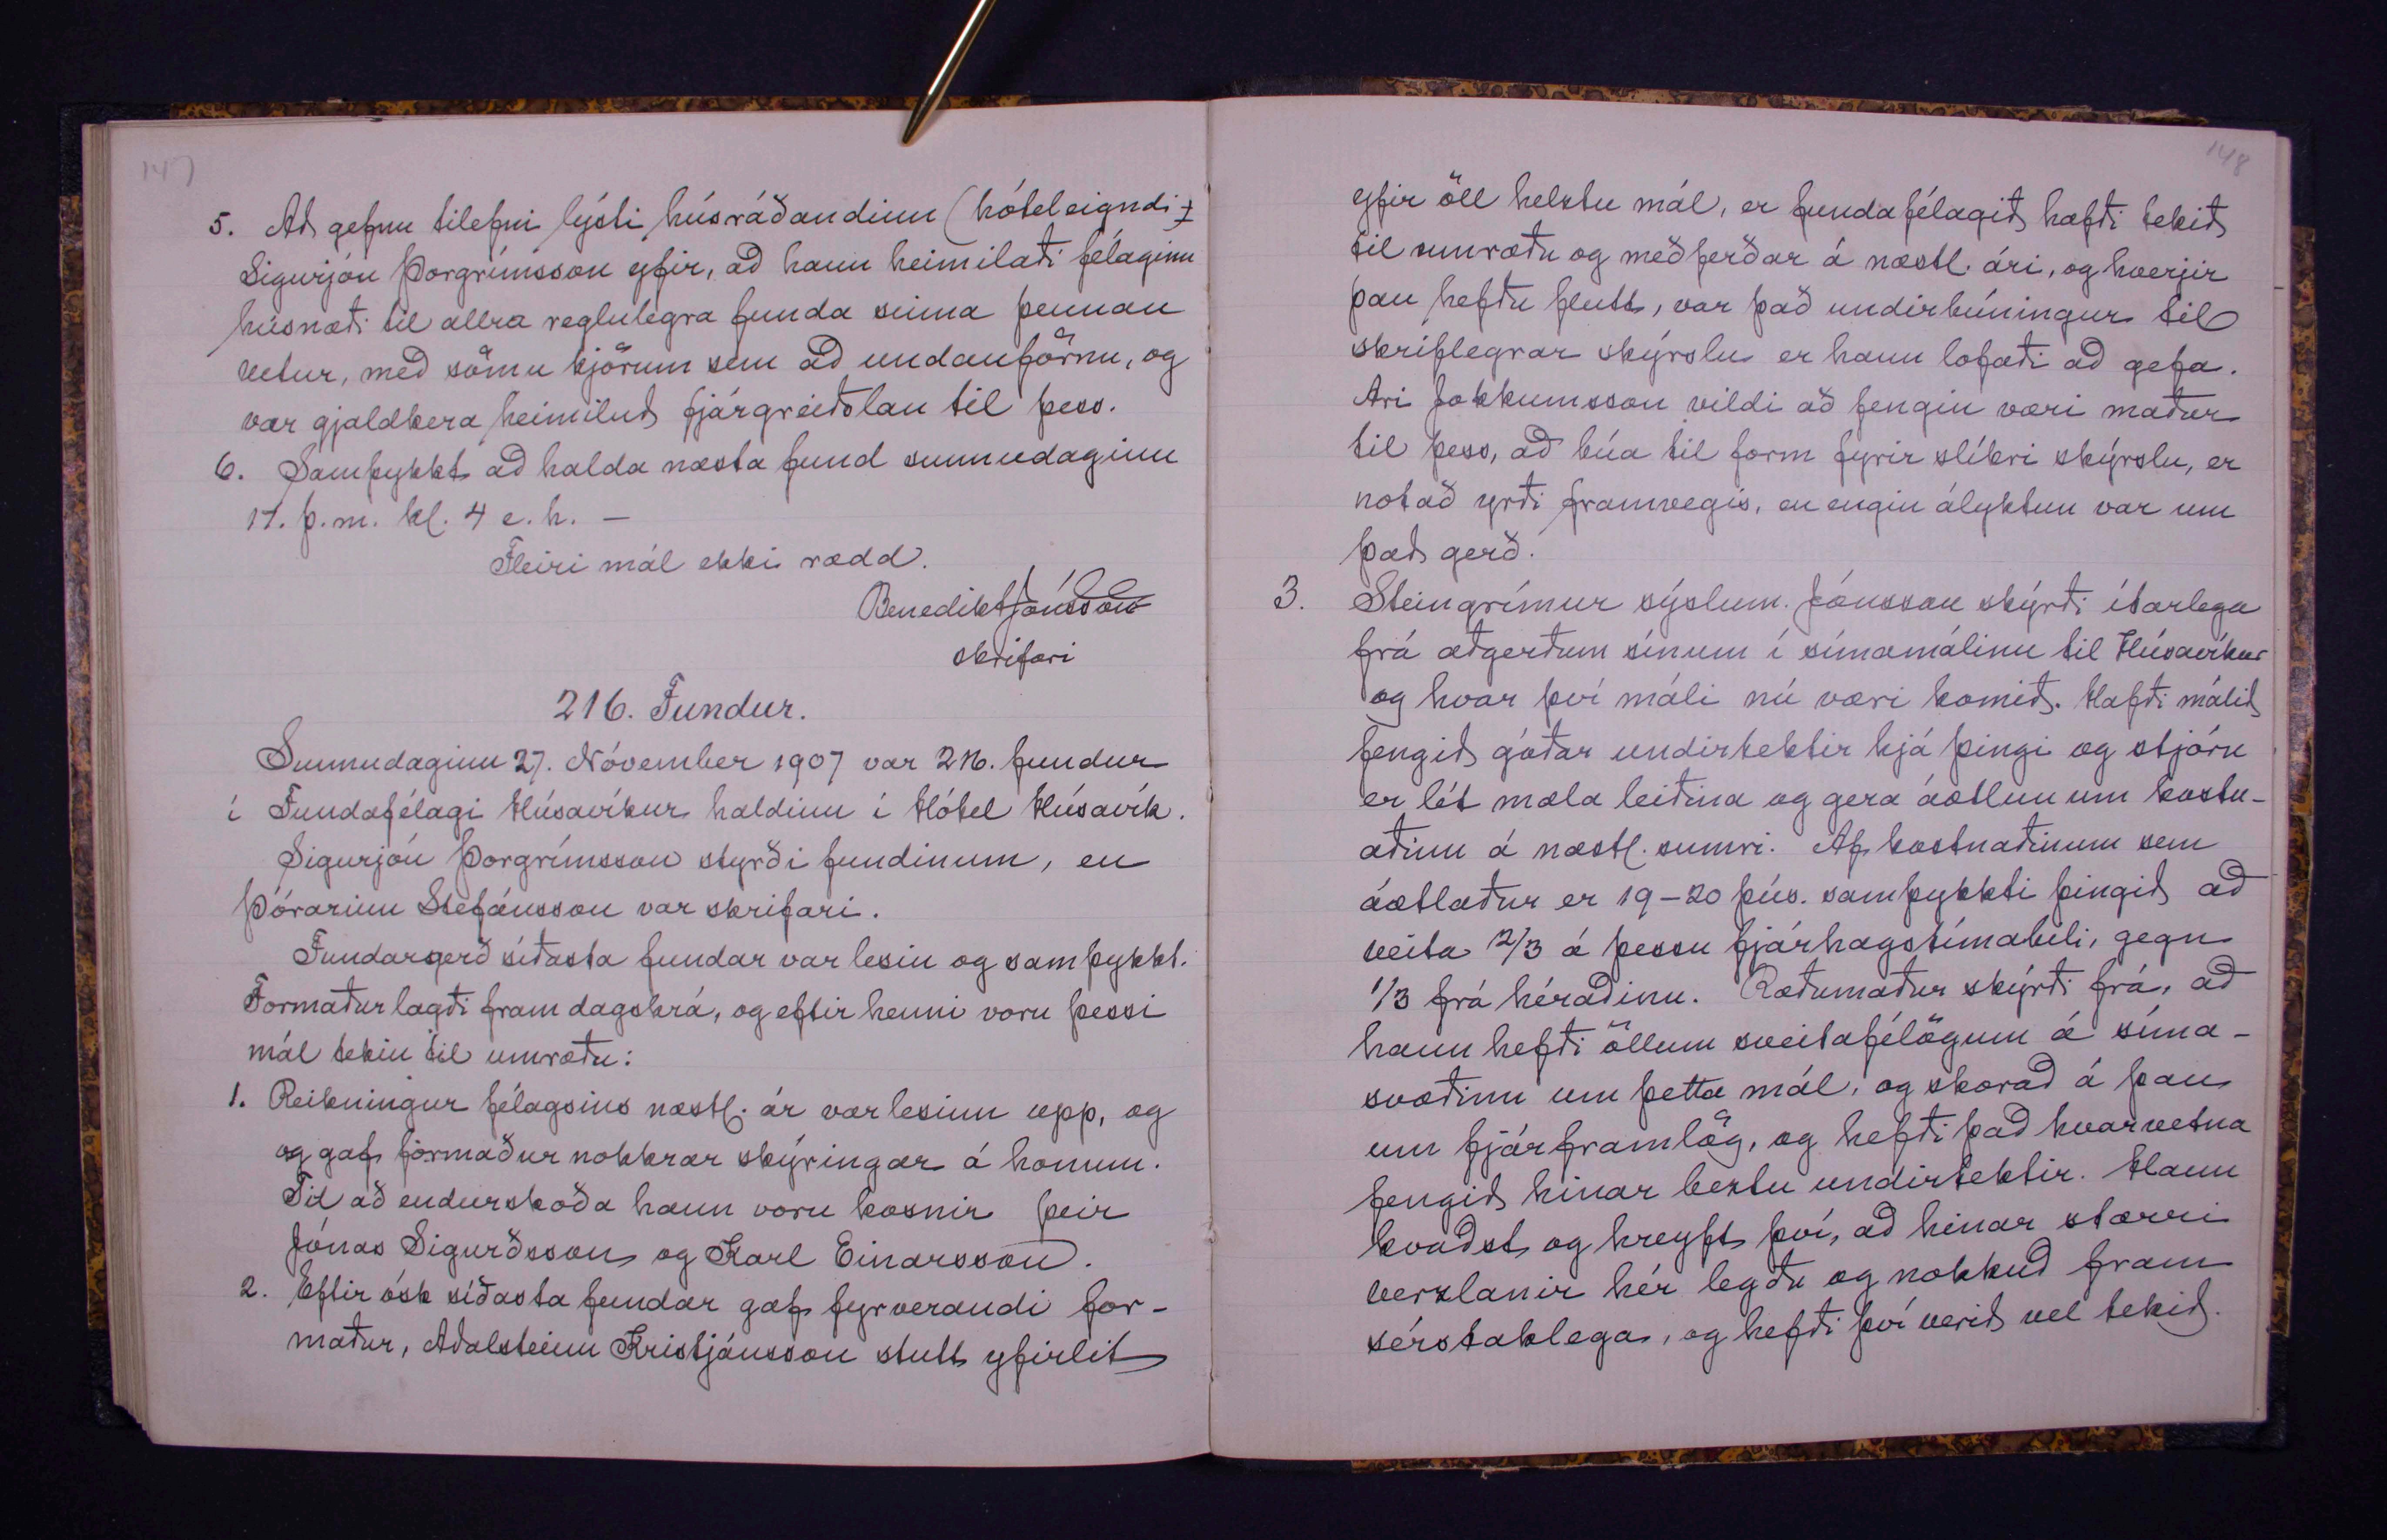 147
5. Að gefnu tilefni lýsti húsráðandinn (hóteleigndi)
Sigurjón Þorgrímsson yfir, að hann heimilaði félaginu
húsnæði til allra reglulegra funda sinna þennan
vetur, með sömu kjörum sem að undanförnu, og
var gjaldkera heimiluð fjárgreiðslan til þess.
6. Samþykkt að halda næsta fund sunnudaginn
17. þ.m. kl. 4 e.h. —
Fleiri mál ekki rædd.
Benedikt Jónsson
skrifari
216. Fundur.
Sunnudaginn 27. Nóvember 1907 var 216. fundur
í Fundafélagi Húsavíkur haldinn í Hótel Húsavík.
Sigurjón Þorgrímsson styrði fundinum, en
Þórarinn Stefánsson var skrifari.
Fundargerð síðasta fundar var lesin og samþykkt.
Formaður lagði fram dagskrá, og eftir henni voru þessi
mál tekin til umræðu:
1. Reikningur félagsins næstl. ár var lesinn upp, og
og gaf formaður nokkrar skýringar á honum.
Til að endurskoða hann voru kosnir þeir
Jónas Sigurðsson og Karl Einarsson.
2. Eftir ósk síðasta fundar gaf fyrverandi for-
maður, Aðalsteinn Kristjánsson stutt yfirlit
148
yfir öll helstu mál, er fundafélagið hafði tekið
til umræðu og meðferðar á næstl. ári, og hverjir
þau hefðu flutt, var það undirbúningur til
skriflegrar skýrslu er hann lofaði að gefa.
Ari Jokkumsson vildi að fengin væri maður
til þess, að búa til form fyrir slíkri skýrslu, er
notað yrði framvegis, en engin ályktun var um
það gerð.
3. Steingrímur sýslum. Jónsson skýrði ítarlega
frá aðgerðum sínum í símamálinu til Húsavíkur
og hvar því máli nú væri komið. Hafði málið
fengið góðar undirtektir hjá þingi og stjórn
er lét mæla leiðina og gera áætlun um kostn-
aðinn á næstl. sumri. Af kostnaðinum sem
áætlaður er 19-20 þús. samþykkti þingið að
veita 2/3 á þessu fjárhagstímabili, gegn
1/3 frá héraðinu. Ræðumaður skýrði frá, að
hann hefði öllum sveitafélögum á síma-
svæðinu um þetta mál, og skorað á þau
um fjárframlög, og hefði það hvarvetna
fengið hinar bestu undirtektir. Hann
kvaðst og hreyft því, að hinar stærri
verzlanir hér legðu og nokkuð fram
sérstaklega, og hefði því verið vel tekið.